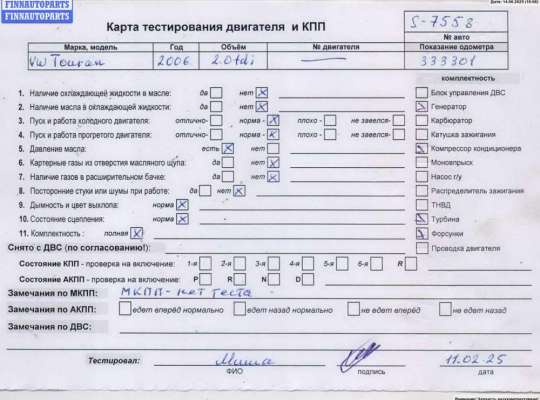 FINNAUTOPARTS
FINNAUTOPARTS
Дата: 14.06.2025
Карта тестирования двигателя и КПП
S-7558
№ авто
Марка, модель Год Объём № двигателя Показание одометра
VW Touran 2006 2.0tdi — 333301
комплектность
1. Наличие охлаждающей жидкости в масле: да нет X Блок управления ДВС
2. Наличие масла в охлаждающей жидкости: да нет X Генератор
3. Пуск и работа холодного двигателя: отлично- норма - X плохо - не завелся- Карбюратор
4. Пуск и работа прогретого двигателя: отлично- норма - X плохо - не завелся- Катушка зажигания
5. Давление масла: есть X нет Компрессор кондиционера
6. Картерные газы из отверстия масляного щупа: да нет X Моновпрыск
7. Наличие газов в расширительном бачке: да нет X Насос г/у
8. Посторонние стуки или шумы при работе: да нет X Распределитель зажигания
9. Дымность и цвет выхлопа: норма X ТНВД
10. Состояние сцепления: норма X Турбина
11. Комплектность : полная X Форсунки
Снято с ДВС (по согласованию!): Проводка двигателя
Состояние КПП - проверка на включение: 1-я 2-я 3-я 4-я 5-я 6-я R
Состояние АКПП - проверка на включение: P R N D
Замечания по МКПП: МКПП - нет теста
Замечания по АКПП: едет вперёд нормально едет назад нормально не едет вперёд не едет назад
Замечания по ДВС:
Тестировал: Миша 11.02.25
ФИО подпись дата